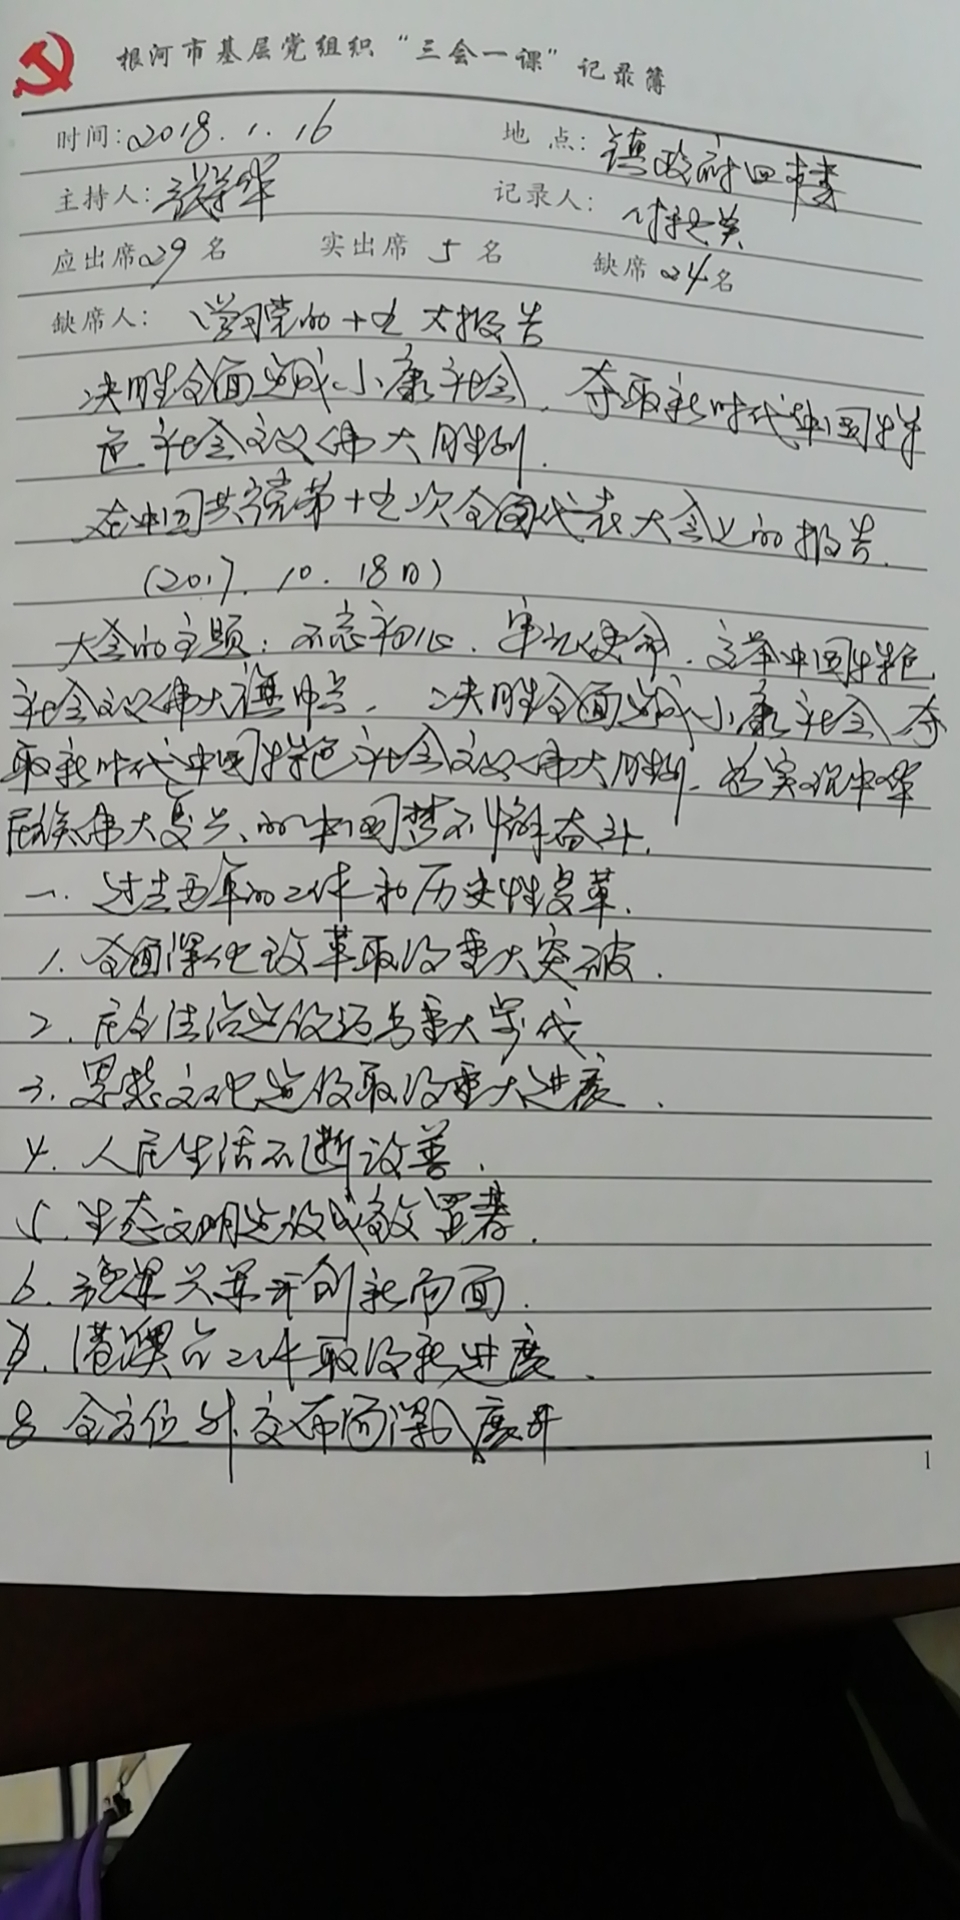 根河市基层党组织“三会一课”记录簿
时间:2018.1.16 地点:镇政府四楼
主持人: 记录人:
应出席29名 实出席5名 缺席24名
缺席人: 学习党的十九大报告
决胜全面建成小康社会,夺取新时代中国特
色社会主义伟大胜利.
在中国共产党第十九次全国代表大会上的报告.
(2017.10.18日)
大会的主题:不忘初心.牢记使命.高举中国特色
社会主义伟大旗帜,决胜全面建成小康社会,夺
取新时代中国特色社会主义伟大胜利.为实现中华
民族伟大复兴的中国梦不懈奋斗.
一.过去五年的工作和历史性变革.
1.全面深化改革取得重大突破.
2.民主法治建设迈出重大步伐
3.思想文化建设取得重大进展.
4.人民生活不断改善.
5.生态文明建设成效显著.
6.强军兴军开创新局面.
7.港澳台工作取得新进展.
8 全方位外交布局深入展开
1